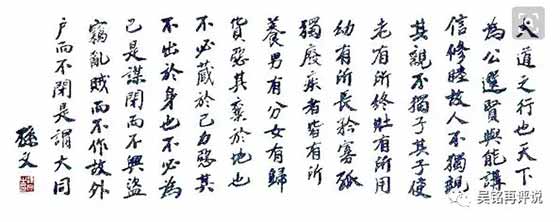 大道之行也天下
為公選賢與能講
信修睦故人不獨親
其親不獨子其子使
老有所終壯有所用
幼有所長矜寡孤
獨廢疾者皆有所
養男有分女有歸
貨惡其棄於地也
不必藏於己力惡其
不出於身也不必為
己是謀閉而不興盜
竊亂賊而不作故外
户而不閉是謂大同
孫文
吴铭再评说